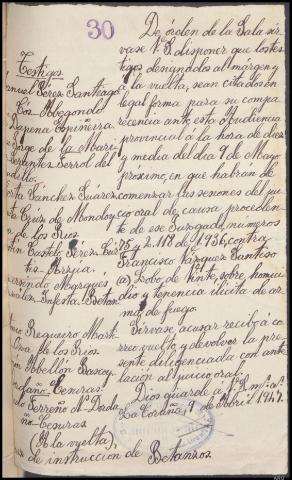 30
De órden de la Sala sír-
vase V.S. disponer que los tes-
tigos designados al márgen y
á la vuelta, sean citados en
legal forma para su compa
recencia ante esta Audiencia
provincial á la hora de diez
y media del dia 9 de Mayo
próximo, en que habran de
comenzar las sesiones del jui-
cio oral de causa proceden-
te de ese Juzgado, números
75 y 2.118 de 1936, contra
Francisco Vázquez Santiso
(a) Lobo de Vinte, sobre homici
dio y tenencia ilícita de ar
ma de fuego.
Sírvase, acusar recibo á co
rreo vuelto y devolver la pre
sente diligenciada con ante
lación al juicio oral.
Dios guarde á V.S. m. a.
La Coruña, 9 de Abril 1947.
Testigos
Manuel Pérez Santiago
Cos-Abegondo
Lapena Espiñeira
Jorge de la Mari
Cervantes Ferrol del
dillo.
Sánchez Suárez
Cruz de Mondoy
de los Rios
Castelo Pérez
tis-
Márqués
Infesta
Regueiro Mart
Oza de los Rios
Abellón Bascoy
Cesuras
Ferreño
ño-Cesuras
(A la vuelta),
de instrucción de Betanzos.